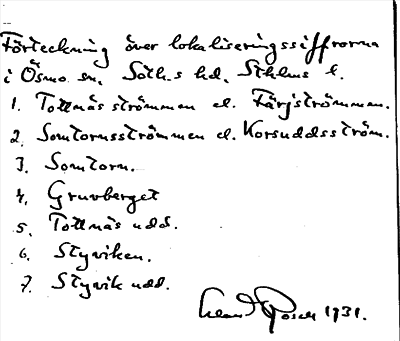 Förteckning över lokaliseringssiffrorna
i Ösmo sn, Söth.s hd, Sthlms l.
1. Tottnäsströmmen el. Färjströmmen.
2. Somtornsströmmen el. Korsuddsström.
3. Somtorn.
4. Gruvberget
5. Tottnäs udd.
6. Styviken.
7. Styvik udd.
1931.